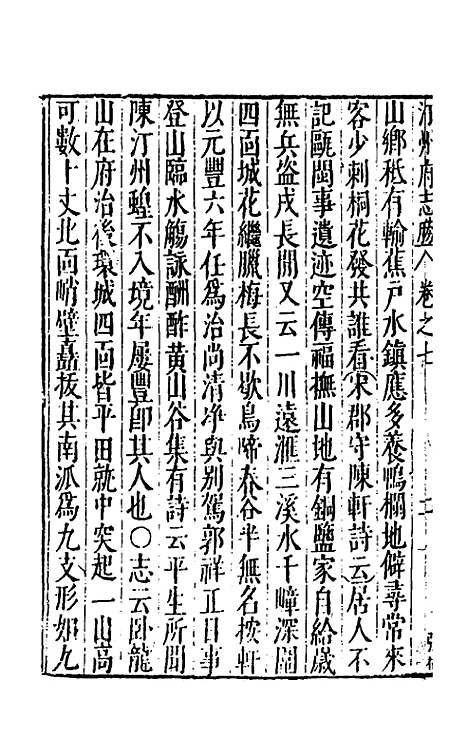 汀州府志 卷之七
山鄉秪有輸蕉戸水鎮應多養鴨欄地僻尋常來
客少刺桐花發共誰看宋郡守陳軒詩云居人不
記甌閩事遺迹空傳福撫山地有銅鹽家自給歲
無兵盜戍長閒又云一川遠滙三溪水千嶂深圍
四面城花繼臘梅長不歇鳥啼春谷半無名按軒
以元豐六年任爲治尚清净與别駕郭祥正日事
登山臨水觴詠酬酢黄山谷集有詩云平生所聞
陳汀州蝗不入境年屢豐卽其人也〇志云卧龍
山在府治後環城四面皆平田就中突起一山高
可數十丈北面峭壁嶤拔其南派爲九支形如九